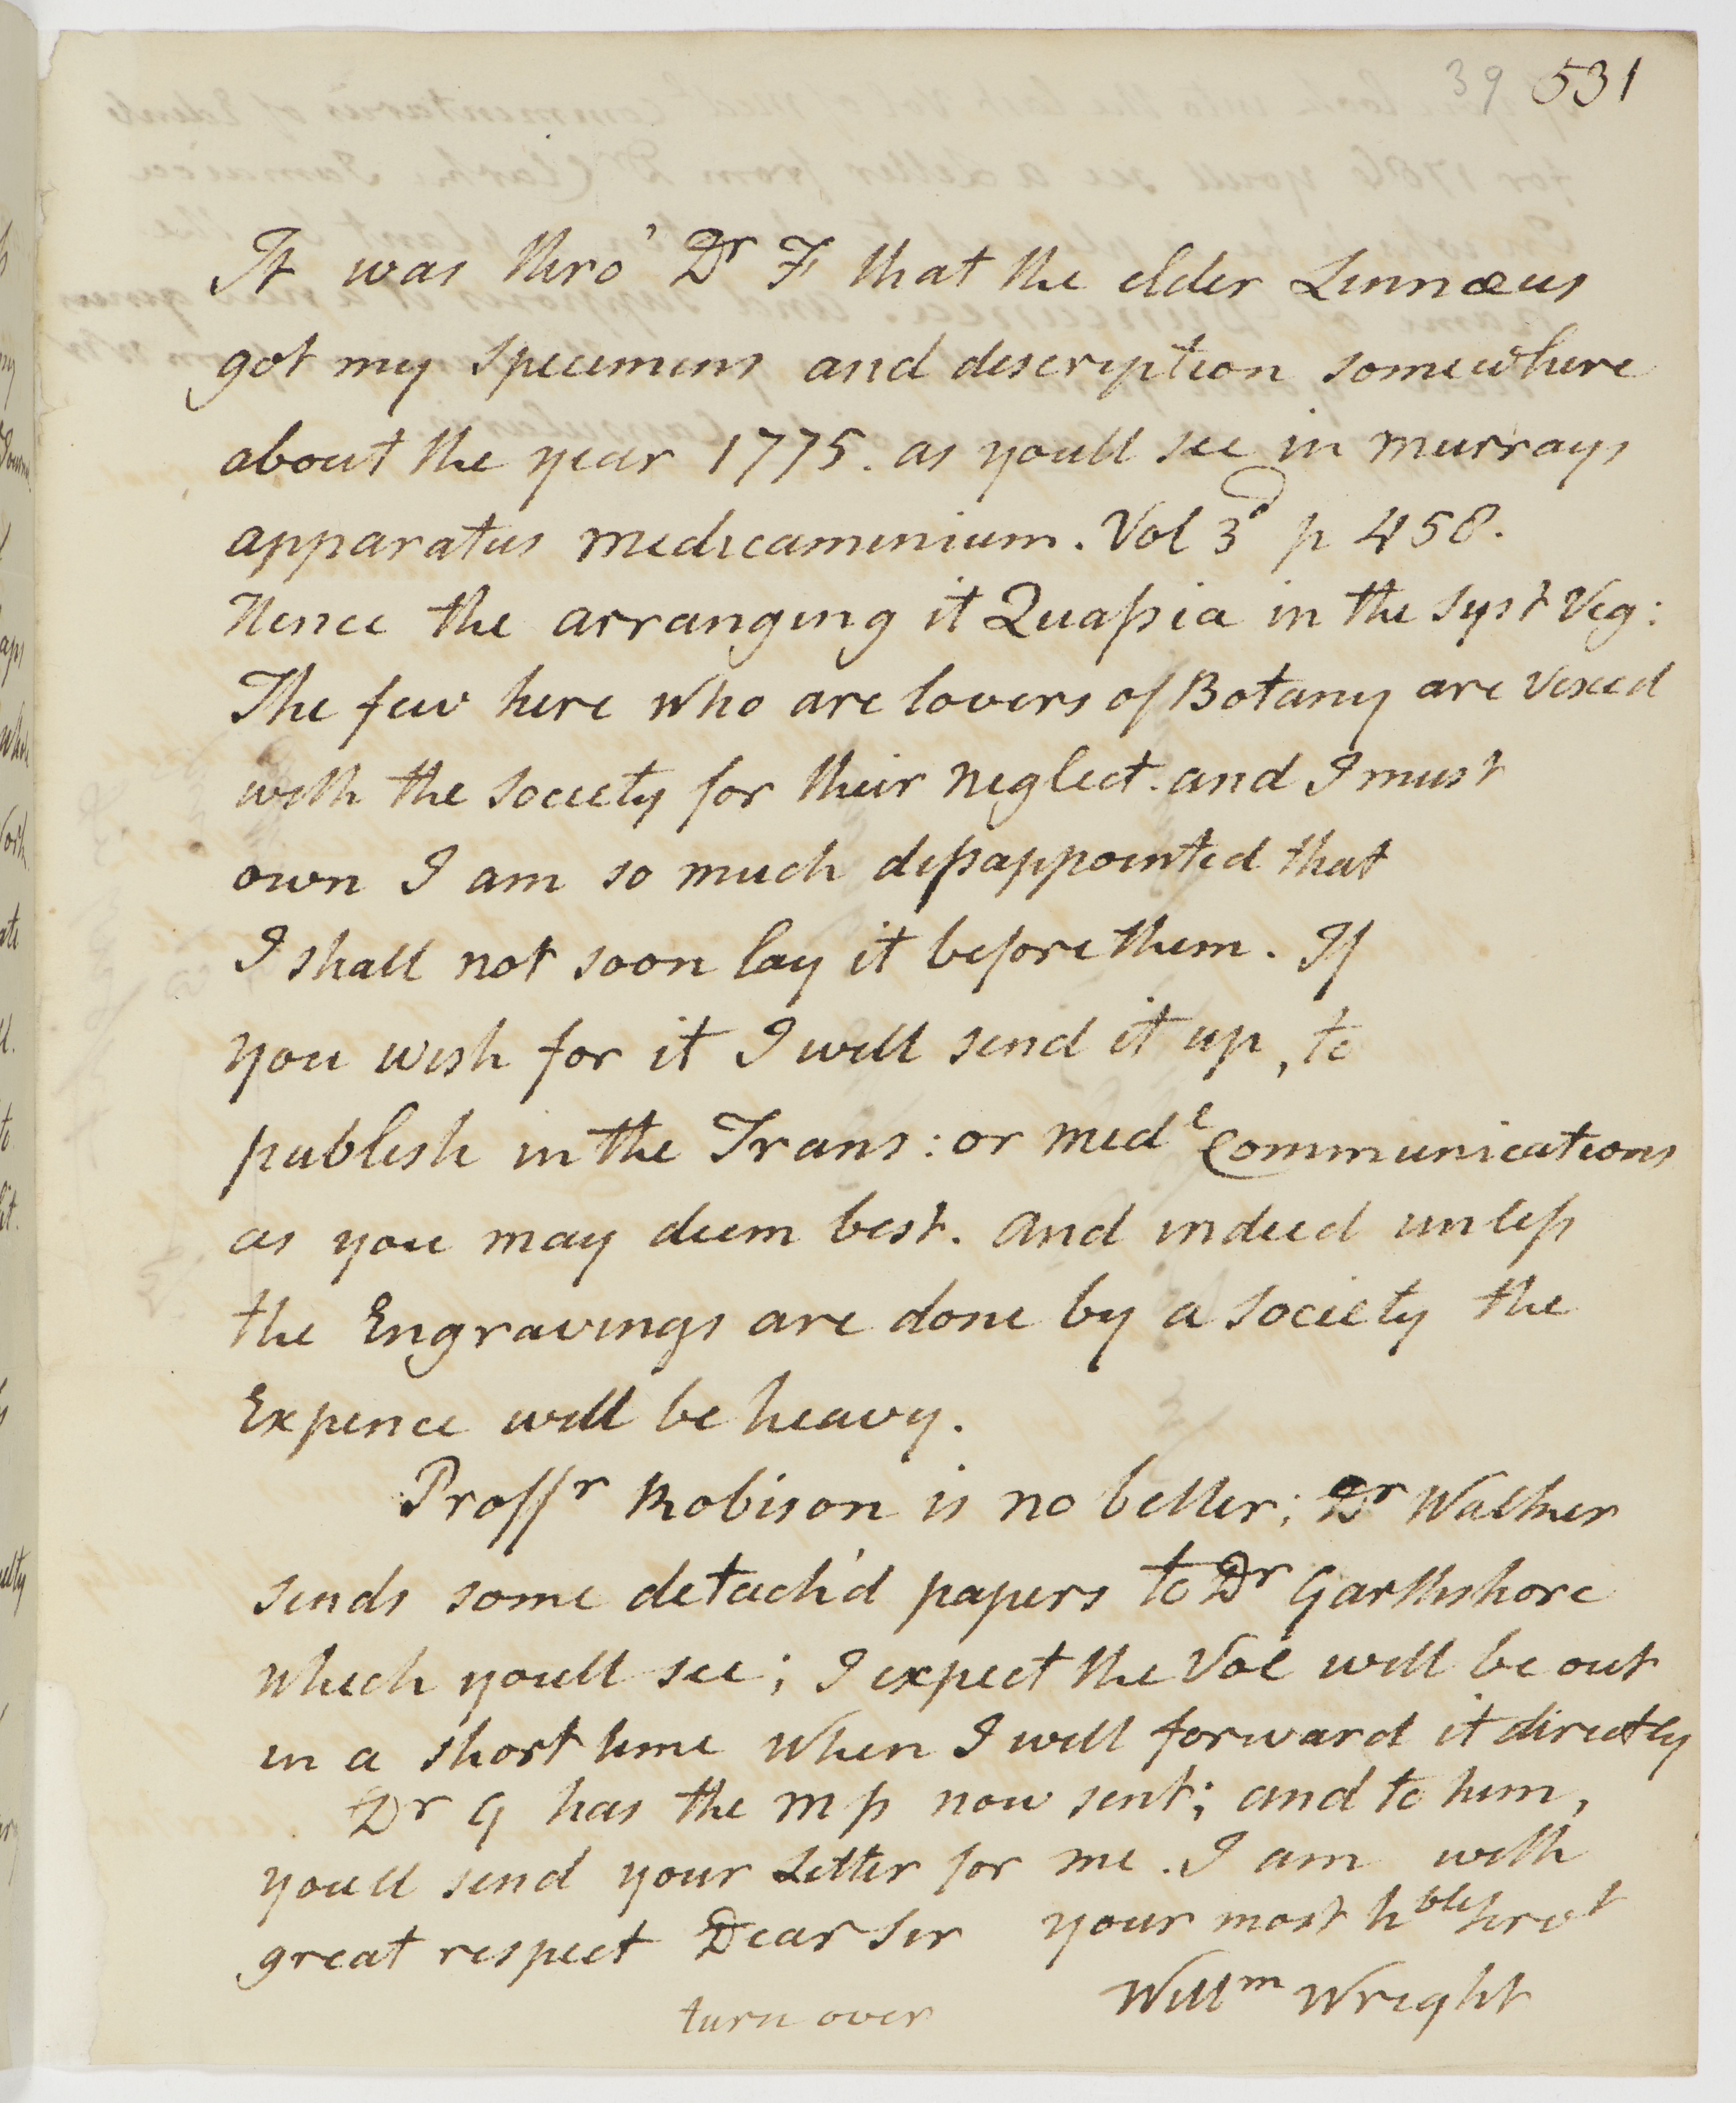 39 531
It was thro' Dr F that the elder Linnæus
got my specimens and description somewhere
about the year 1775. as youll see in murrays
apparatus medicaminium. Vol 3d p 458.
Hence the arranging it Quaſsia in the Syst Veg:
The few here who are lovers of Botany are vexed
with the Society for their neglect. and I must
own I am so much diſsappointed that
I shall not soon lay it before them. If
you wish for it I will send it up, to
publish in the Trans: or medl Communications
as you may deem best. and indeed unleſs
the Engravings are done by a Society the
Expence will be heavy.
Proffr Robison is no better; Dr Walker
sends some detach'd papers to Dr Garthshore
which youll see; I expect the Vol will be out
in a short time when I will forward it directly
Dr G has the mſs now sent; and to him,
youll send your Letter for me. I am with
great respect Dear Sir your most hble servt
Willm Wright
turn over